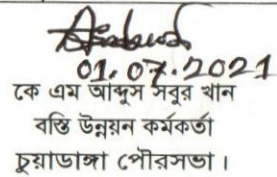 01.07.2021
কে এম আব্দুস সবুর খান
বস্তি উন্নয়ন কর্মকর্তা
চুয়াডাঙ্গা পৌরসভা।